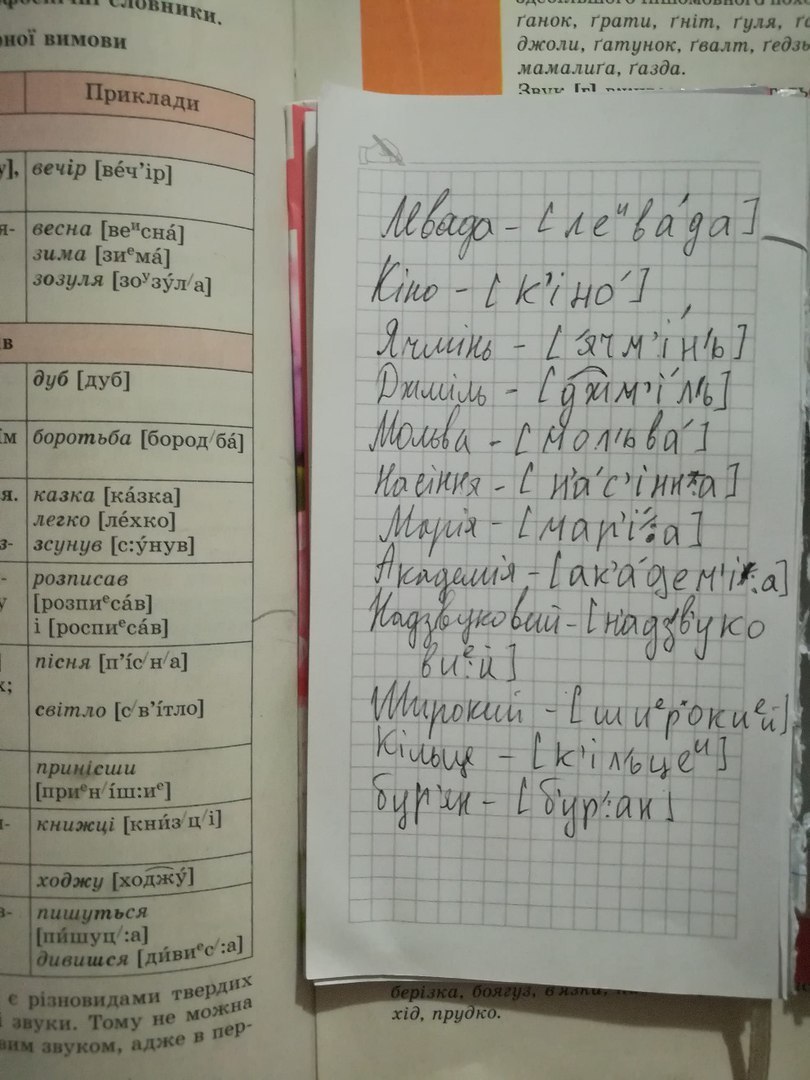 словники.
ної вимови
Приклади
вечір [ве́ч'ір]
весна [веᴵсна́]
зима [зиᵉма́]
зозуля [зоʸзу́л′а]
в
дуб [дуб]
боротьба [бород′ба́]
казка [ка́зка]
легко [ле́хко]
зсунув [с:у́нув]
розписав
[розпиᵉса́в]
і [роспиᵉса́в]
пісня [п'і́с′н′а]
світло [с′в'і́тло]
принісши
[приᵉн′і́ш:иᵉ]
книжці [кни́з′ц′і]
ходжу [ходжу́]
пишуться
[пи́шуц′:а]
дивишся [ди́виᵉс′:а]
є різновидами твердих
звуки. Тому не можна
вим звуком, адже в пер-
ґанок, ґрати, ґніт, ґуля,
джоли, ґатунок, ґвалт, ґедзь
мамалиґа, ґазда.
Левада - [леᴵва́да]
Кіно - [к'іно́]
Ячмінь - [ ′ячм'і́н'ь]
Джміль - [джм'і́л'ь]
Мольва - [мол'ьва́]
Насіння - [на́с'інн:а]
Марія - [мар'і́:а]
Академія - [ак'а́дем'і:а]
Надзвуковий - [надзвуко
виᵉ:й]
Широкий - [шиᵉр'окиᵉй]
Кільце - [к'ільцеᴵ]
бур'ян - [бур':ан]
берізка, боягуз, в'язки,
хід, прудко.